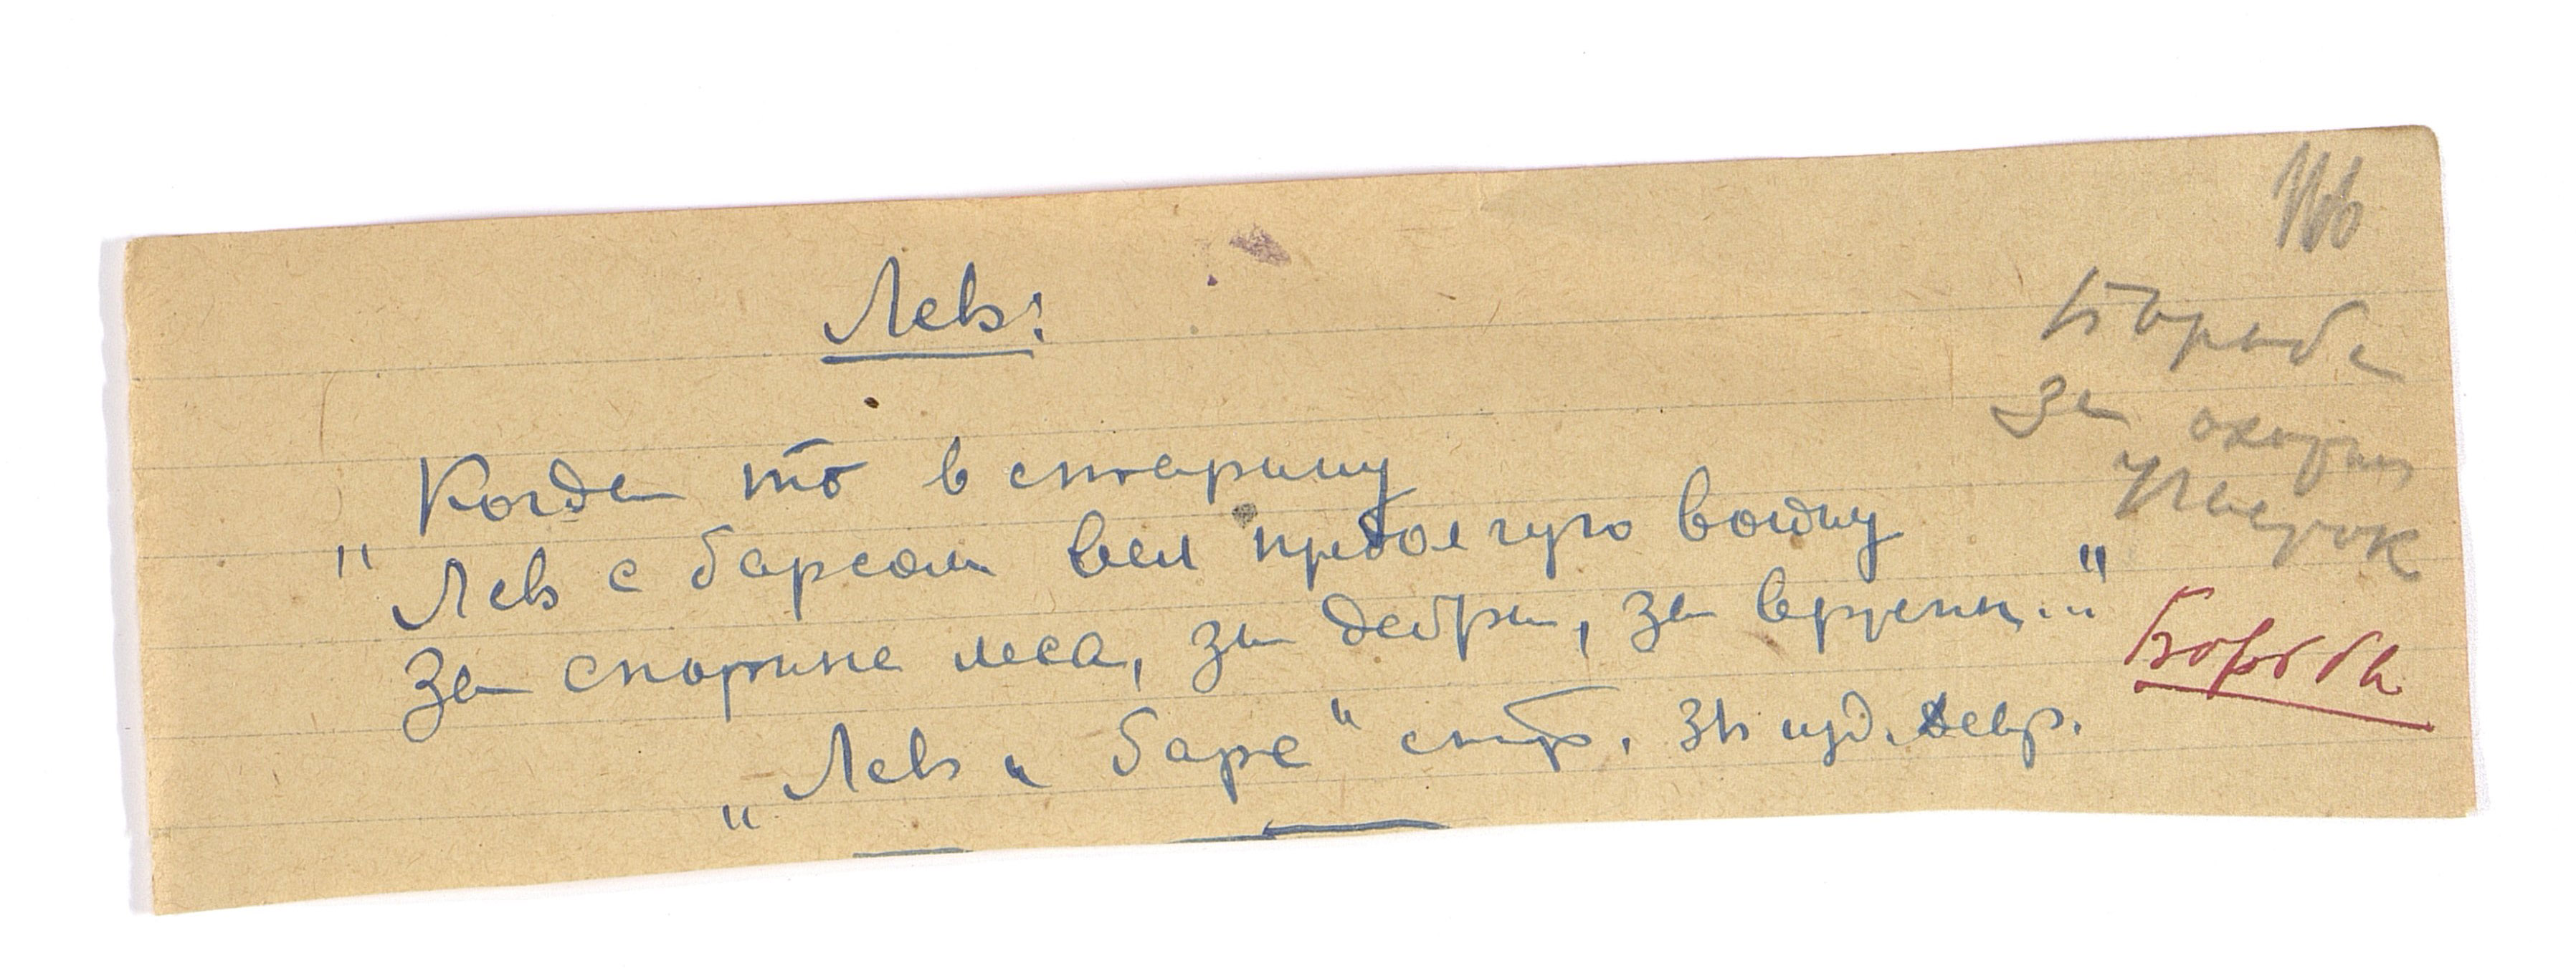 166
Лев:
Борьба
за охотн
участок
Когда то в старину
"Лев с барсом вел предолгую войну
За спорные леса, за дебри, за вертепы..."
Борьба
"Лев и барс" стр. 31 изд. Девр.